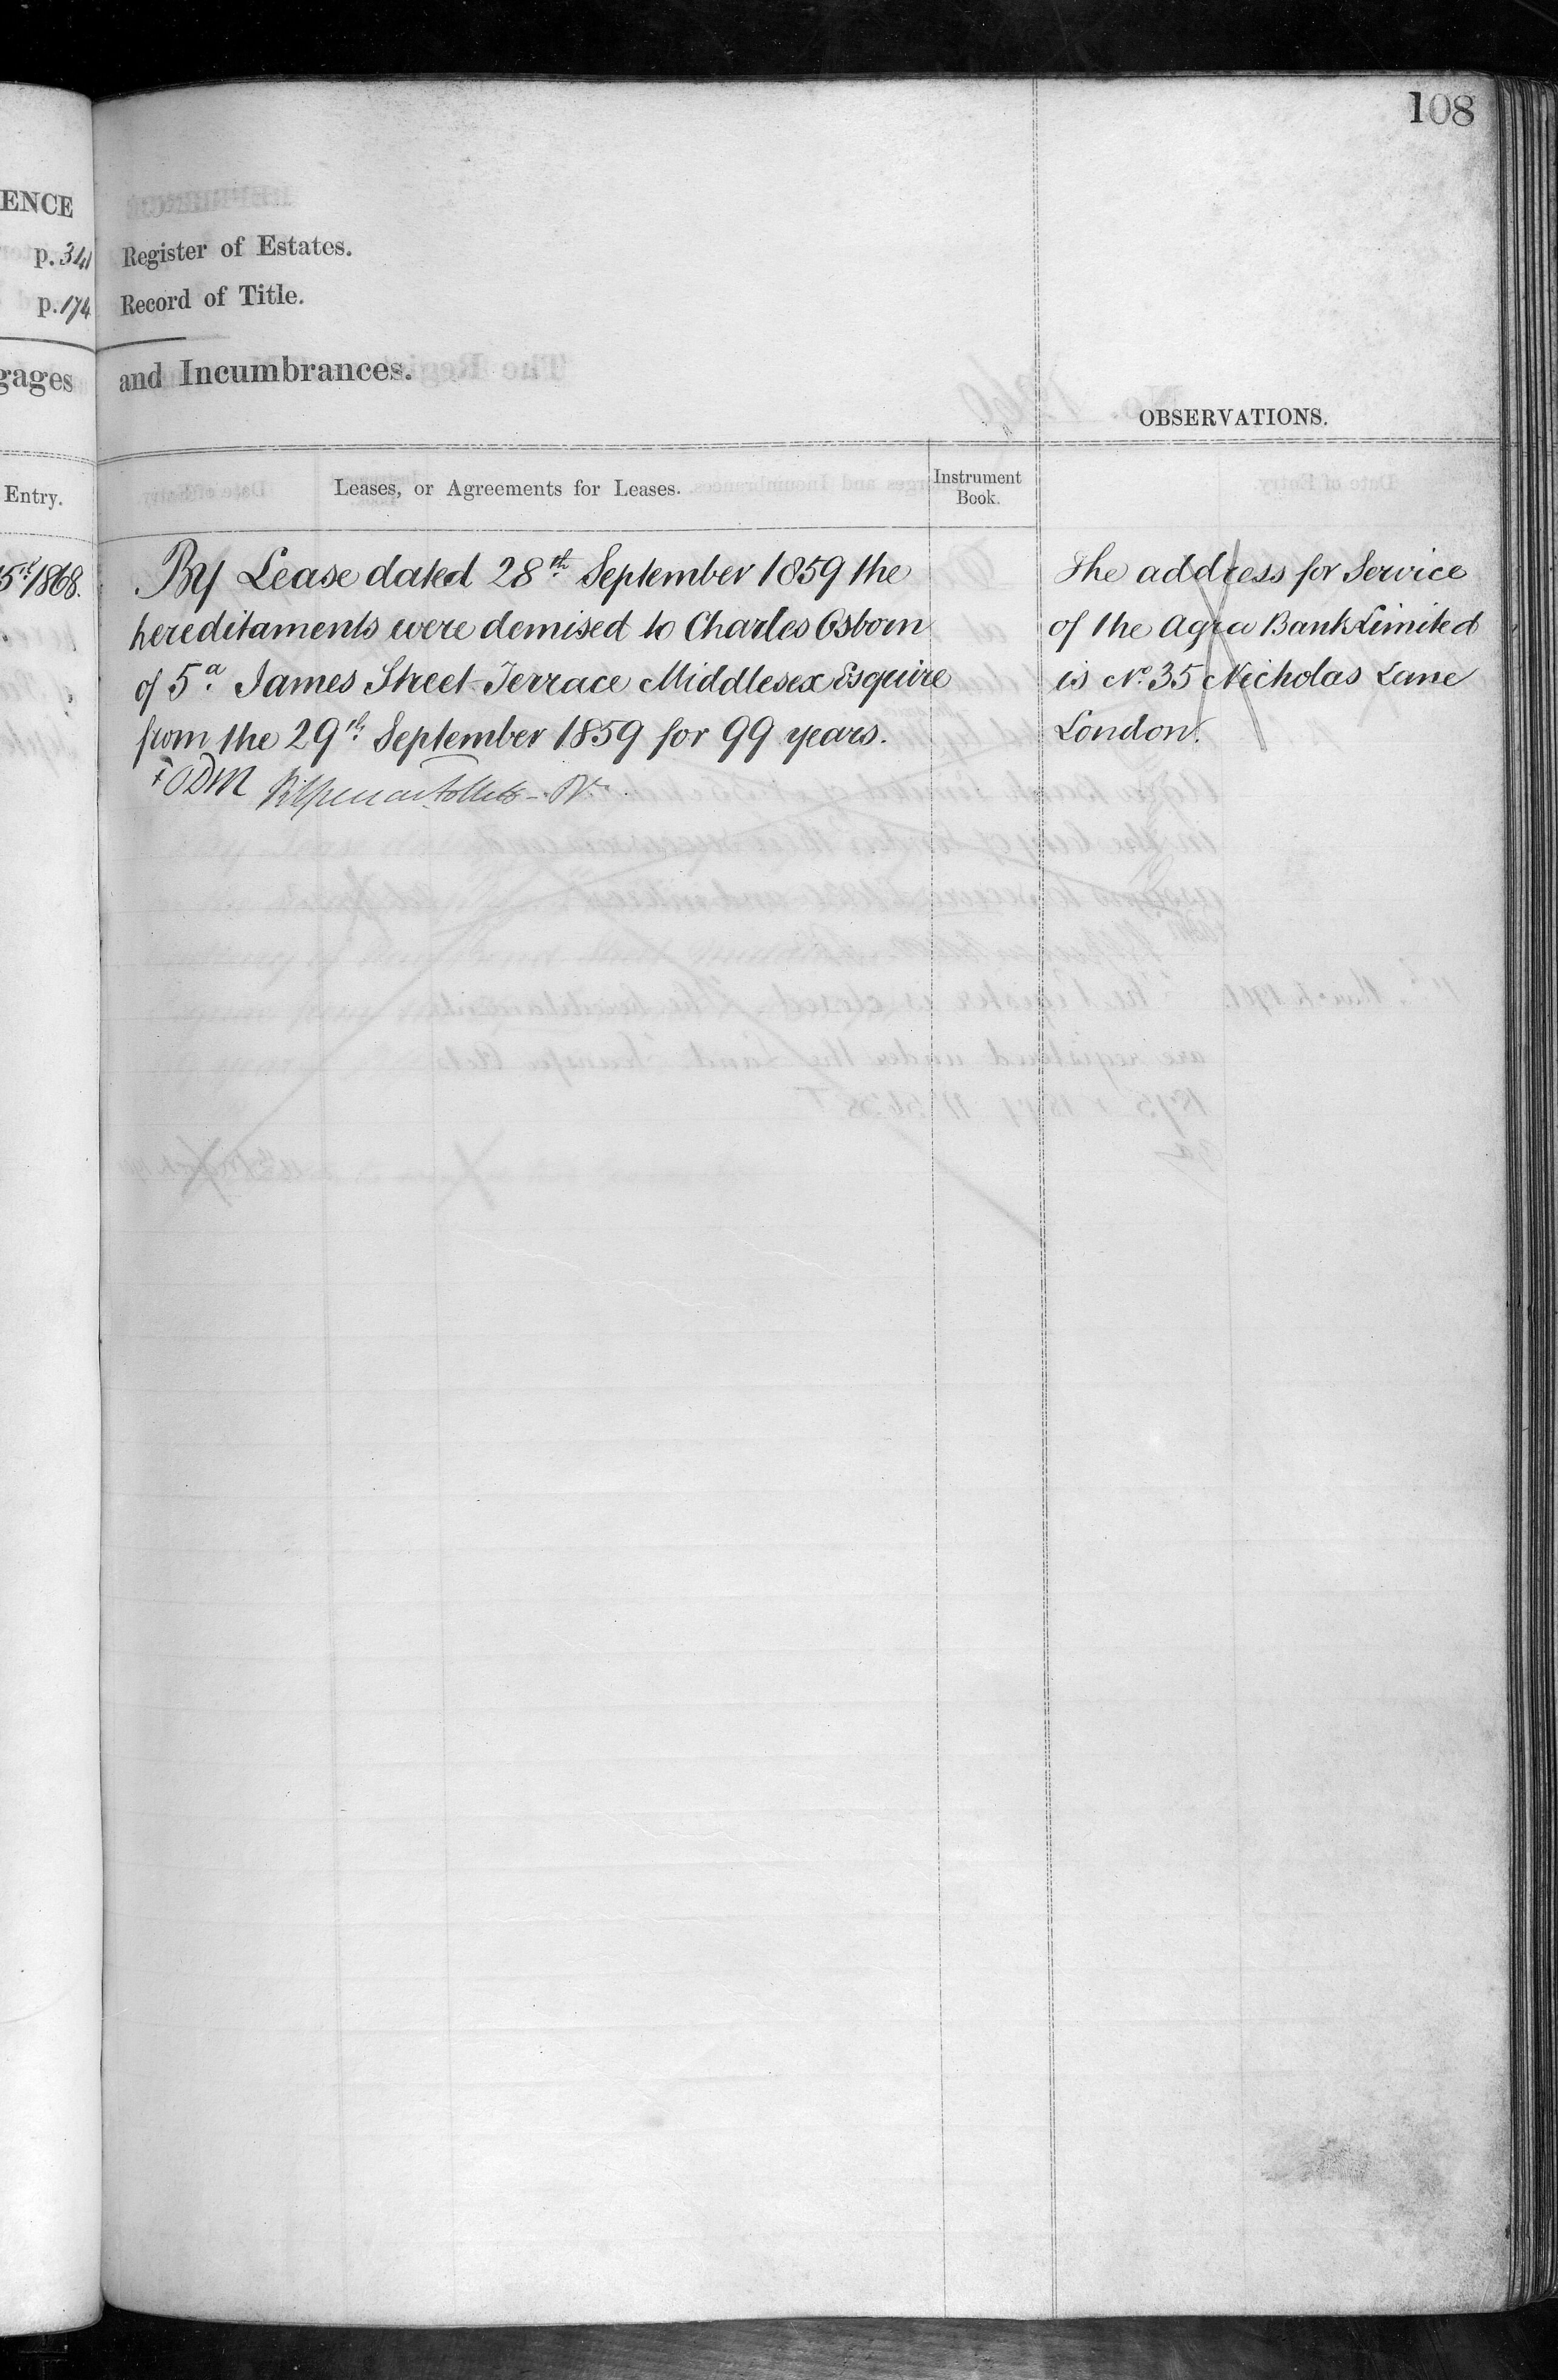 108
ENCE
p. 341 Register of Estates.
p. 174 Record of Title.
gages and Incumbrances.
OBSERVATIONS.
Entry.
Leases, or Agreements for Leases.
Instrument Book.
5th 1868.
By Lease dated 28th September 1859 the
hereditaments were demised to Charles Osborn
of 5a. James Street Terrace Middlesex Esquire
from the 29th September 1859 for 99 years.
The address for Service
of the Agra Bank Limited
is No. 35 Nicholas Lane
London.